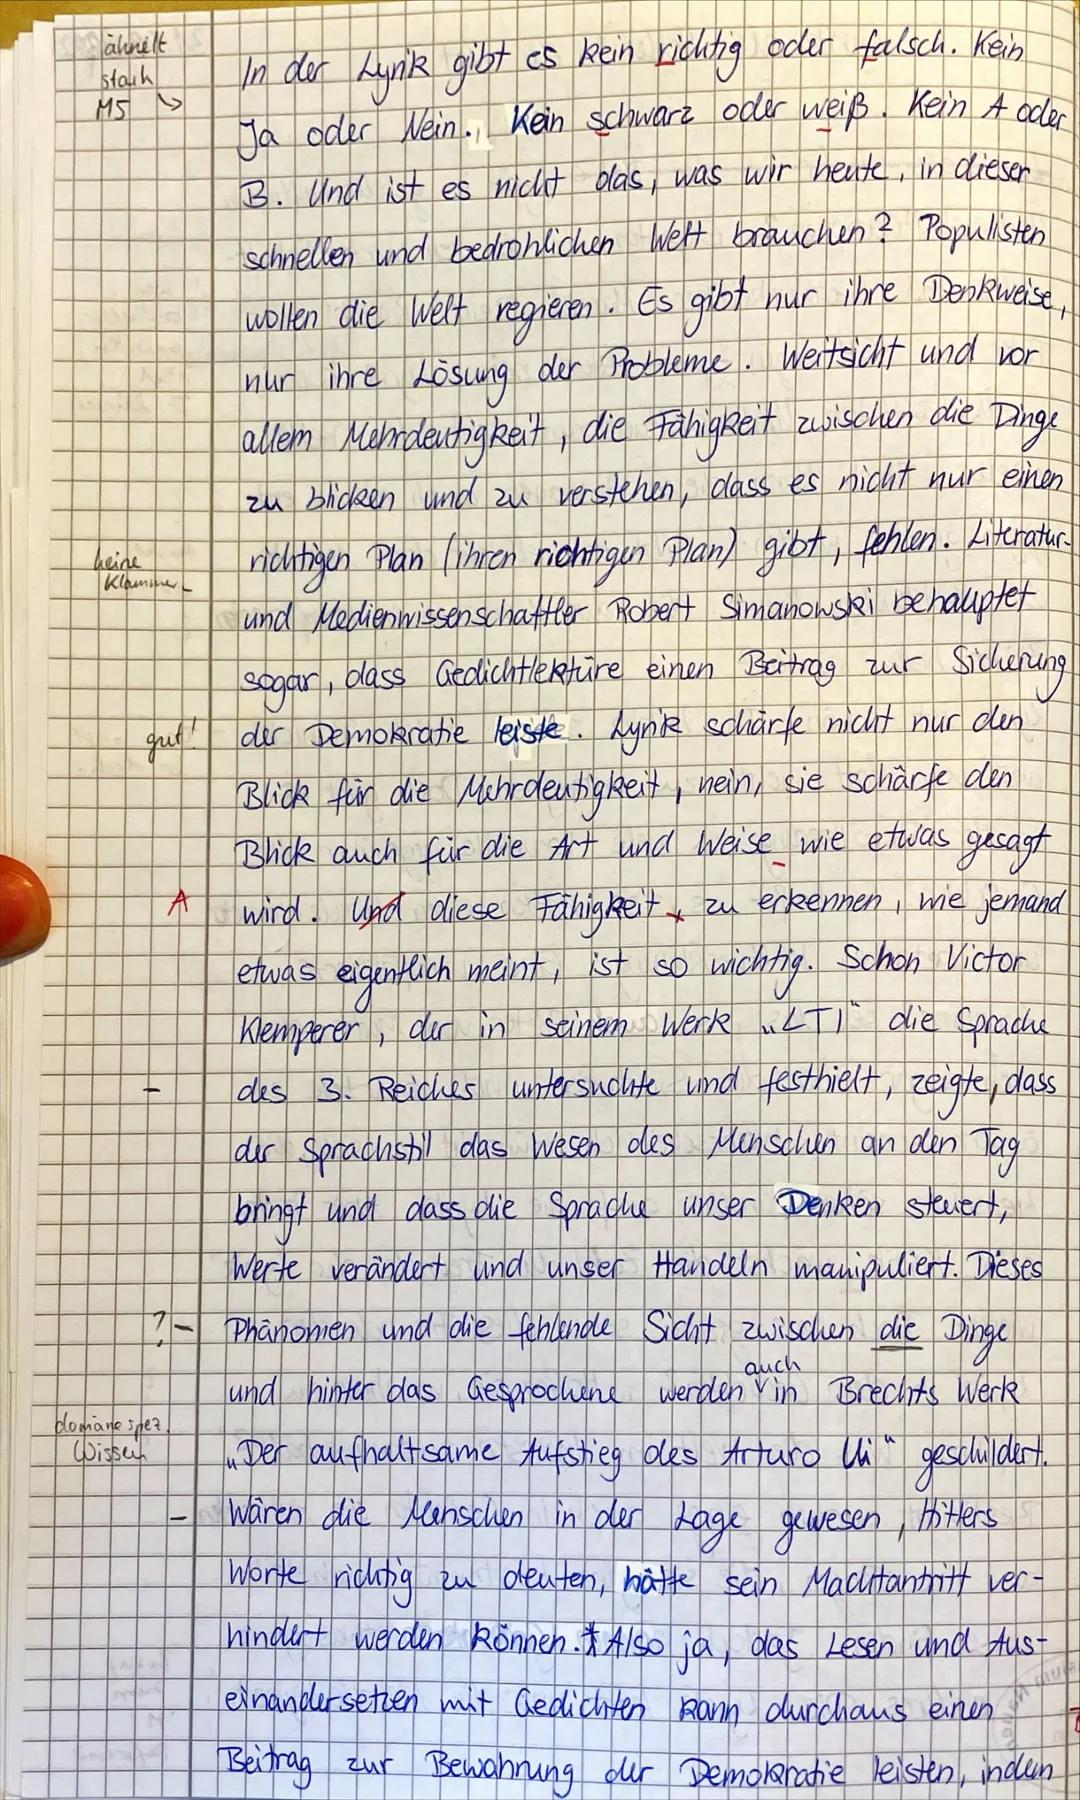 ähnelt
stark
M5
In der Lyrik gibt es kein richtig oder falsch. Kein
Ja oder Nein. Kein schwarz oder weiß. Kein A oder
B. Und ist es nicht das, was wir heute, in dieser
schnellen und bedrohlichen Welt brauchen? Populisten
wollen die Welt regieren. Es gibt nur ihre Denkweise,
nur ihre Lösung der Probleme. Weitsicht und vor
allem Mehrdeutigkeit, die Fähigkeit zwischen die Dinge
zu blicken und zu verstehen, dass es nicht nur einen
keine
Klammer
richtigen Plan (ihren richtigen Plan) gibt, fehlen. Literatur-
und Medienwissenschaftler Robert Simanowski behauptet
sogar, dass Gedichtlektüre einen Beitrag zur Sicherung
gut!
der Demokratie leiste. Lyrik schärfe nicht nur den
Blick für die Mehrdeutigkeit, nein, sie schärfe den
Blick auch für die Art und Weise wie etwas gesagt
A
wird. Und diese Fähigkeit, zu erkennen, wie jemand
etwas eigentlich meint, ist so wichtig. Schon Victor
Klemperer, der in seinem Werk „LTI" die Sprache
- des 3. Reiches untersuchte und festhielt, zeigte, dass
der Sprachstil das Wesen des Menschen an den Tag
bringt und dass die Sprache unser Denken steuert,
Werte verändert und unser Handeln manipuliert. Dieses
? - Phänomen und die fehlende Sicht zwischen die Dinge
auch
und hinter das Gesprochene werden in Brechts Werk
domänespez.
Wissen
„Der aufhaltsame Aufstieg des Arturo Ui" geschildert.
- Wären die Menschen in der Lage gewesen, Hitlers
Worte richtig zu deuten, hätte sein Machtantritt ver-
hindert werden können.* Also ja, das Lesen und Aus-
einandersetzen mit Gedichten kann durchaus einen
Beitrag zur Bewahrung der Demokratie leisten, indem